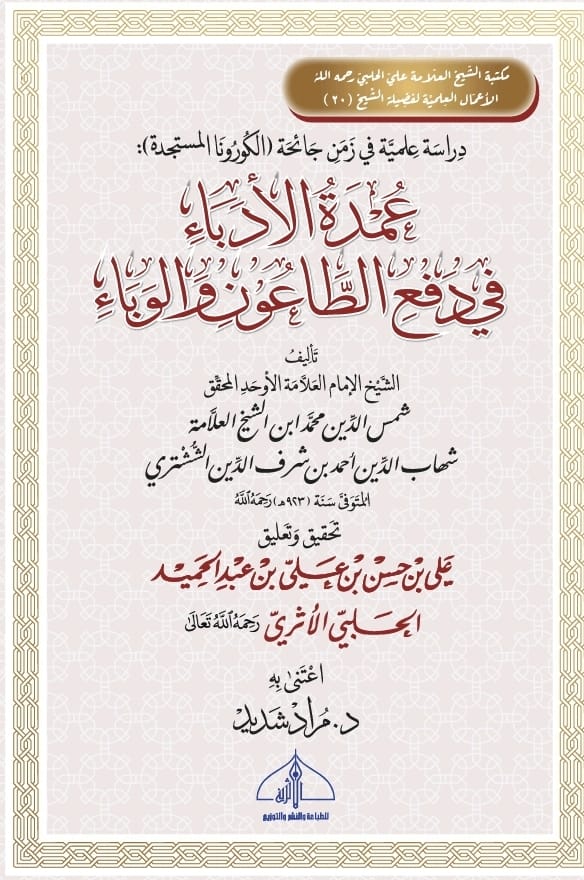 مكتبة الشيخ العلامة علي الحلبي رحمه الله
الأعمال العلمية لفضيلة الشيخ (٢٠)
دِراسَة عِلميَّة في زَمَن جَائحَة (الكُورُونَا المستجدة):
عُمْدَةُ الأُدَبَاءِ
فِي دَفْعِ الطَّاعُوْنِ وَالوَبَاءِ
تَأليفُ
الشَّيْخ الإمام العَلَّامَة الأَوحَدِ المحقّق
شمس الدِّين محمَّد ابن الشيخ العلَّامة
شهاب الدِّين أحمد بن شرف الدِّين الشُّشْتَري
المتَوفَّى سَنَة (٩٢٣هـ) رَحِمَهُ اللَّهُ
تحقيق وَتَعليق
عَلي بن حسن بْن عَلِيّ بن عَبْد الحَمِيد
الحَلَبِيّ الأَثَريّ رَحِمَهُ اللَّهُ تَعَالَى
اعْتَنىٰ بِهِ
د. مُراد شَديِد
الأثرية
للطباعة والنشر والتوزيع